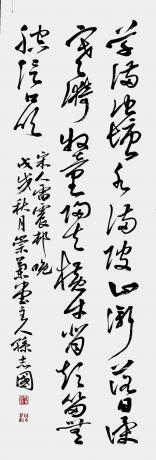 草满池塘水满陂山衔落日浸
寒漪牧童归去横牛背短笛无
腔信口吹
宋人雷震村晚
戊戌秋月荣万堂主人孙志国